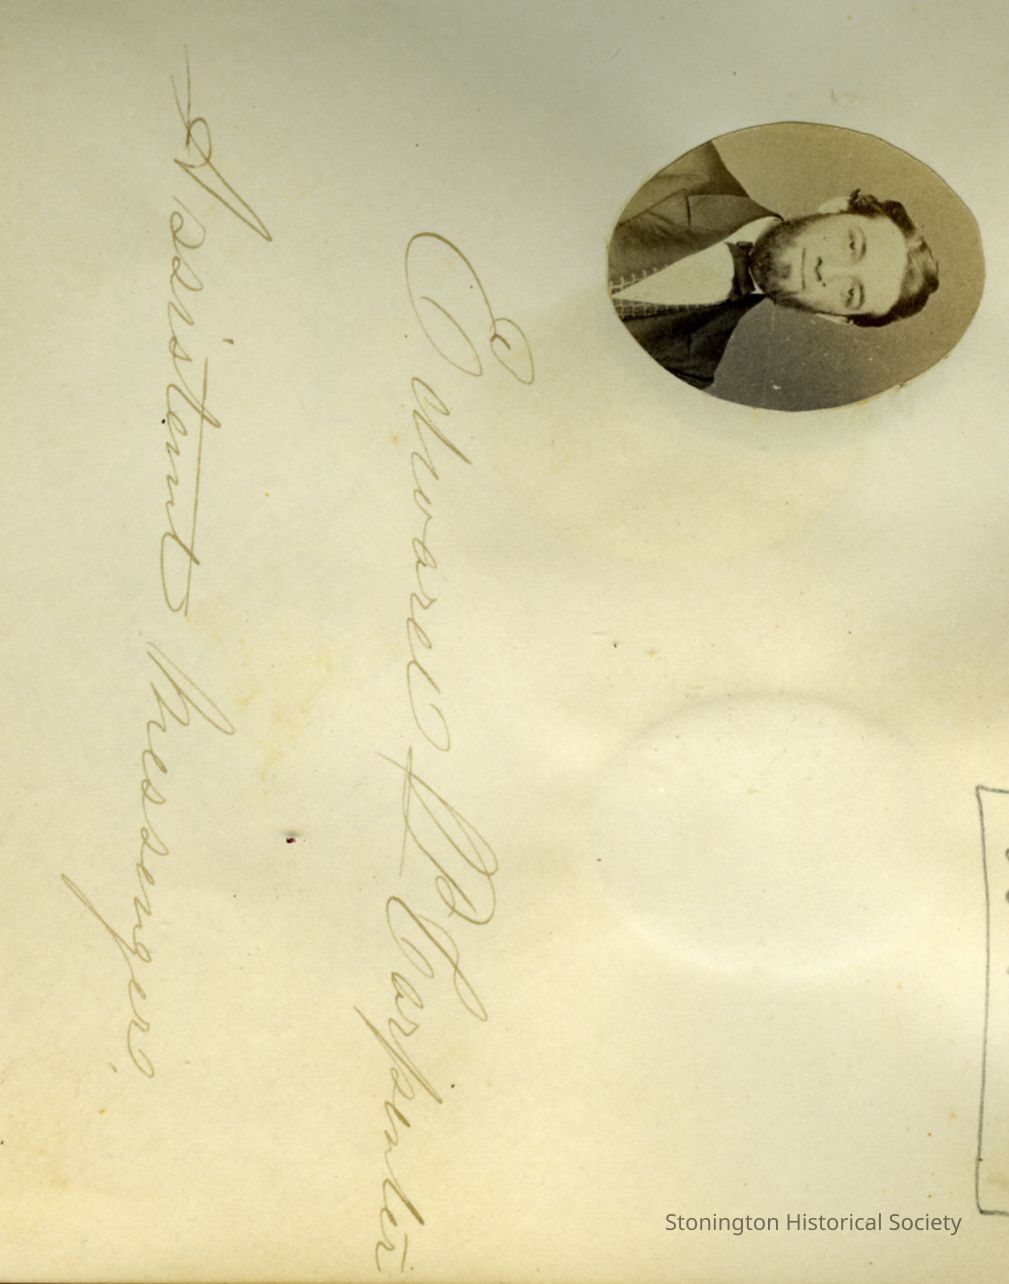 Edward P. Carpenter
Assistant Messenger.
Stonington Historical Society